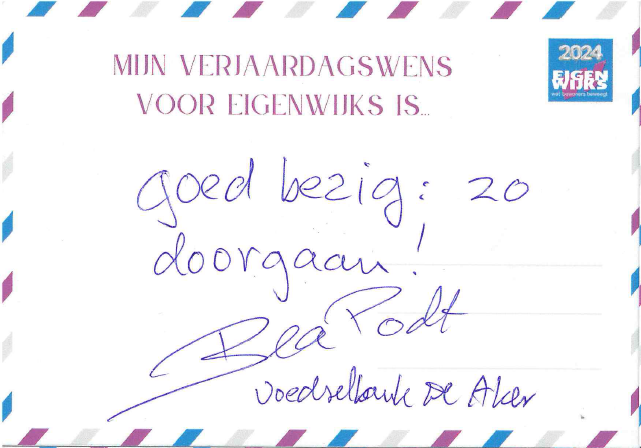 MIJN VERJAARDAGSWENS
VOOR EIGENWIJKS IS...
2024
EIGEN
WIJKS
wat bewoners beweegt
goed bezig: 20
doorgaan!
Bea Podt
voedselbank De Aker